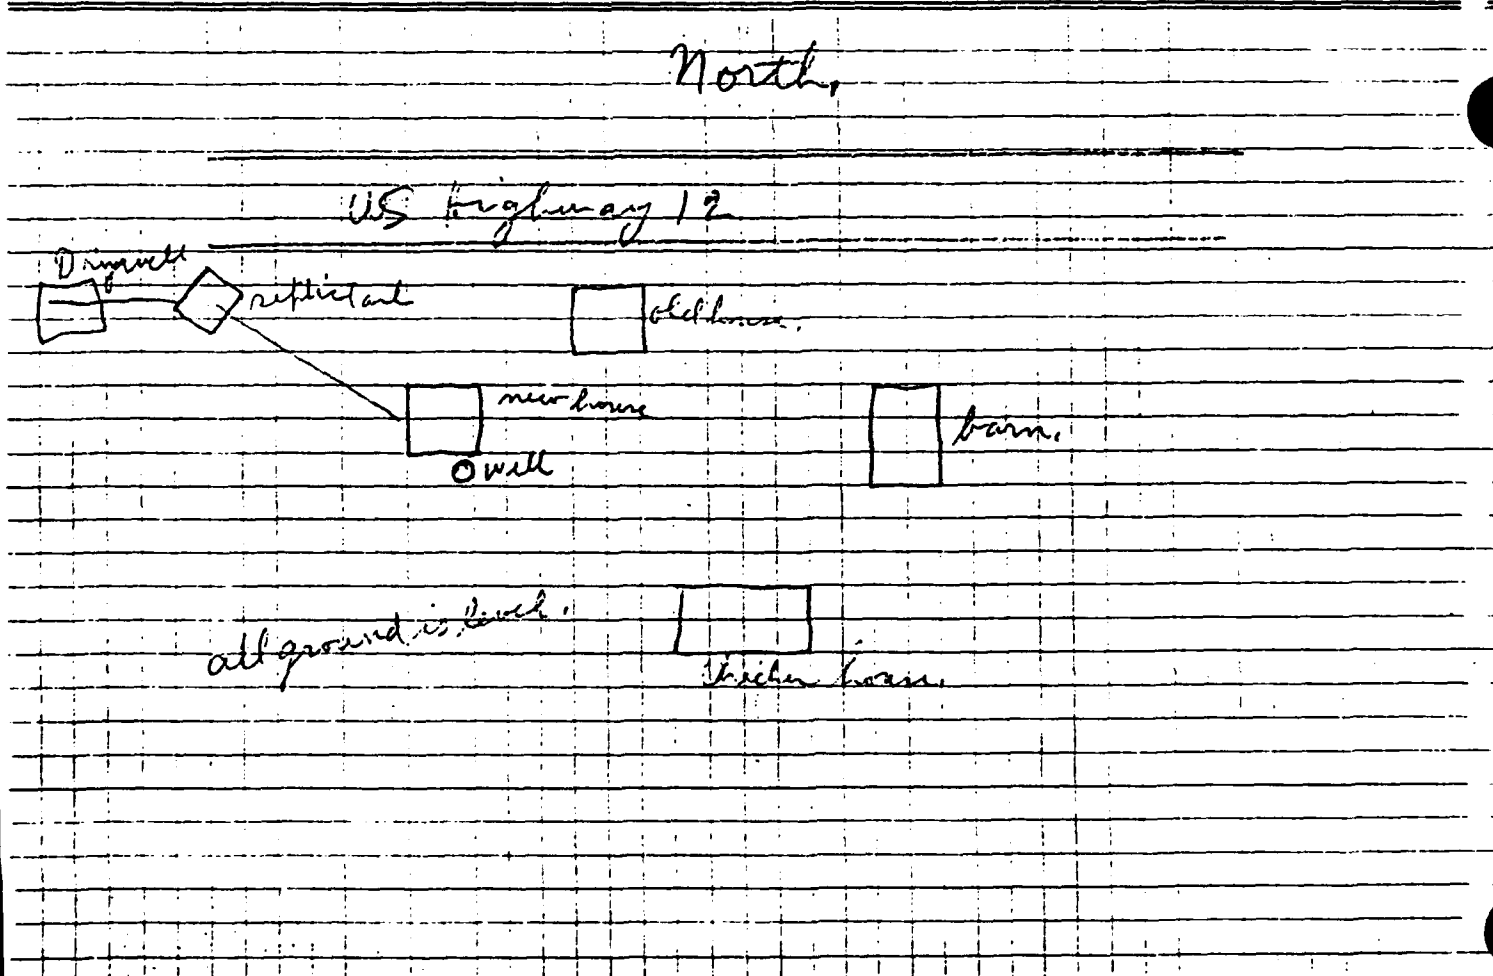 North,
US Highway 12
Drywell
septictank
old house.
new house
barn.
O well
all ground is level.
chicken house.